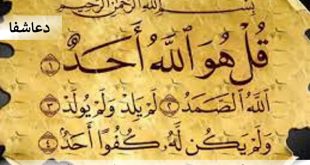 دعاشفا
بِسْمِ اللَّهِ الرَّحْمَنِ الرَّحِيمِ
قُلْ هُوَ اللَّهُ أَحَدٌ ۝١
اللَّهُ الصَّمَدُ ۝٢ لَمْ يَلِدْ وَلَمْ يُولَدْ ۝٣
وَلَمْ يَكُن لَّهُ كُفُوًا أَحَدٌ ۝٤